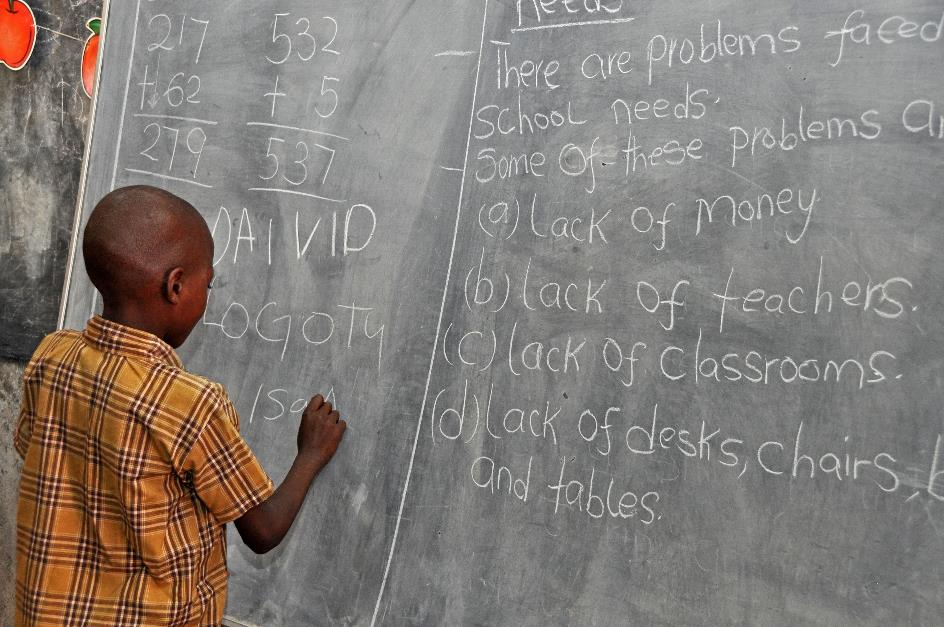 217
+ 62
279
532
+ 5
537
DAIVID
LOGOTY
Needs
There are problems faced
School needs.
Some of these problems
(a) Lack of Money
(b) Lack of teachers.
(c) Lack of Classrooms.
(d) Lack of desks, Chairs,
and tables.